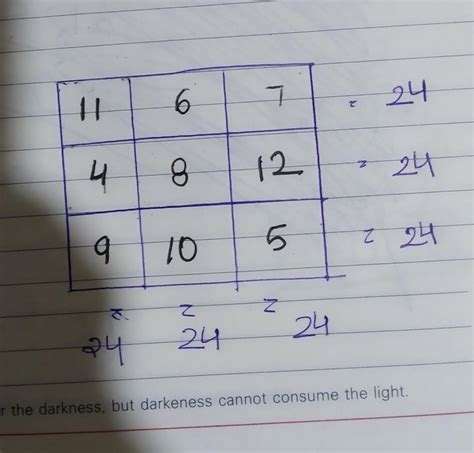 11 6 7 = 24
4 8 12 = 24
9 10 5 = 24
= = =
24 24 24
r the darkness, but darkeness cannot consume the light.